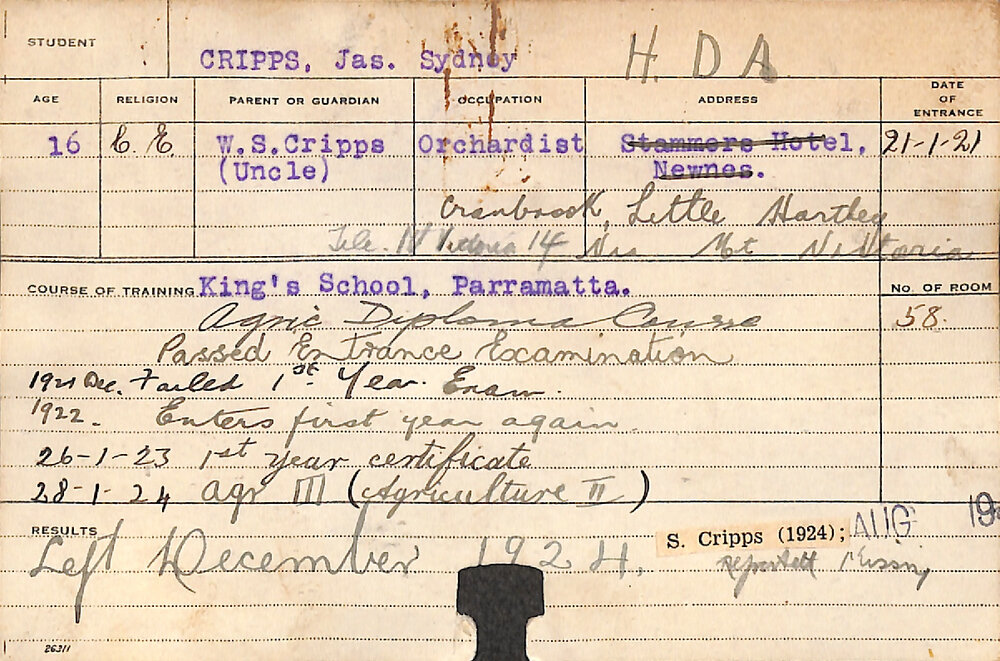 STUDENT
CRIPPS, Jas. Sydney
H.D.A.
AGE
RELIGION
PARENT OR GUARDIAN
OCCUPATION
ADDRESS
DATE OF ENTRANCE
16 C.E. W.S.Cripps Orchardist Stammers Hotel, 21-1-21
(Uncle) Newnes.
Cranbrook, Little Hartley
Tele. Mt Victoria 14 Via Mt Victoria
COURSE OF TRAINING King's School, Parramatta.
No. OF ROOM
Agric Diploma Course 58.
Passed Entrance Examination
1921 Dec. Failed 1st Year. Exam.
1922. Enters first year again.
26-1-23 1st year certificate
28-1-24 Agr III (Agriculture II)
RESULTS
Left December 1924.
S. Cripps (1924); AUG 19
reported Missing
26311